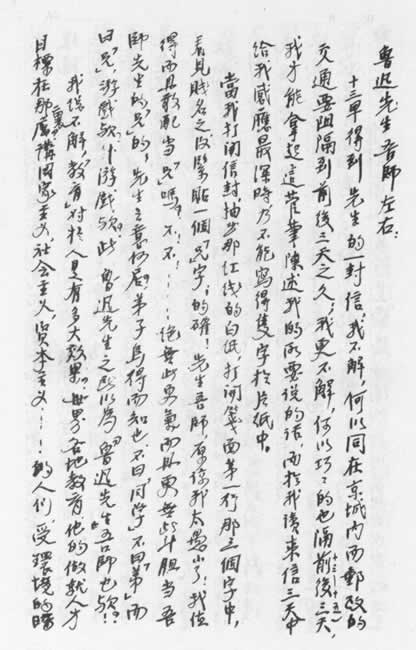 魯迅先生吾師左右:
十三早得到先生的一封信,我不解,何以同在京城內而郵政的
交通要阻隔到前後三天之久?我更不解,何以巧巧的也隔前後三天,
我才能拿起這管筆陳述我的所要說的話,而於我讀來信三天中
給我感應最深時乃不能寫得隻字於片紙中。
當我打開信封,抽出那红线的白紙打開箋面第一行那三個字中,
看見賤名之後緊貼一個"兄"字,的確!先生吾師,原諒我太愚小了!我值
得而且敢配當"兄"嗎?不!不!……絕無此勇氣而且更無此斗胆當吾
師先生的"兄"的,先生之意何居?弟子烏得而知也。不曰"同學"不曰"弟"而
曰"兄",游戲欤?游戲欤?此魯迅先生之所以為"魯迅先生"吾師也欤!?
我總不解,教育對於人是有多大效果?世界各地教育他的做就人才
目標在那裏?講國家主义,社會主义,资本主义……的人们,受環境的